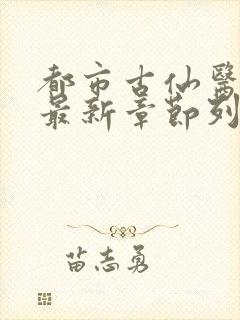 都市古仙醫
最新章節列
苗志勇